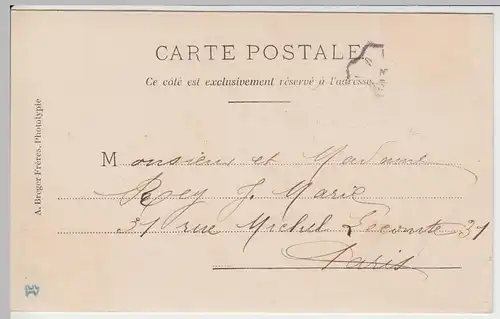 CARTE POSTALE
Ce côté est exclusivement réservé à l'adresse.
Monsieur et Madame
Rey J. Marie
31 rue Michel Lecomte 31
Paris
A. Breger Frères, Phototypie